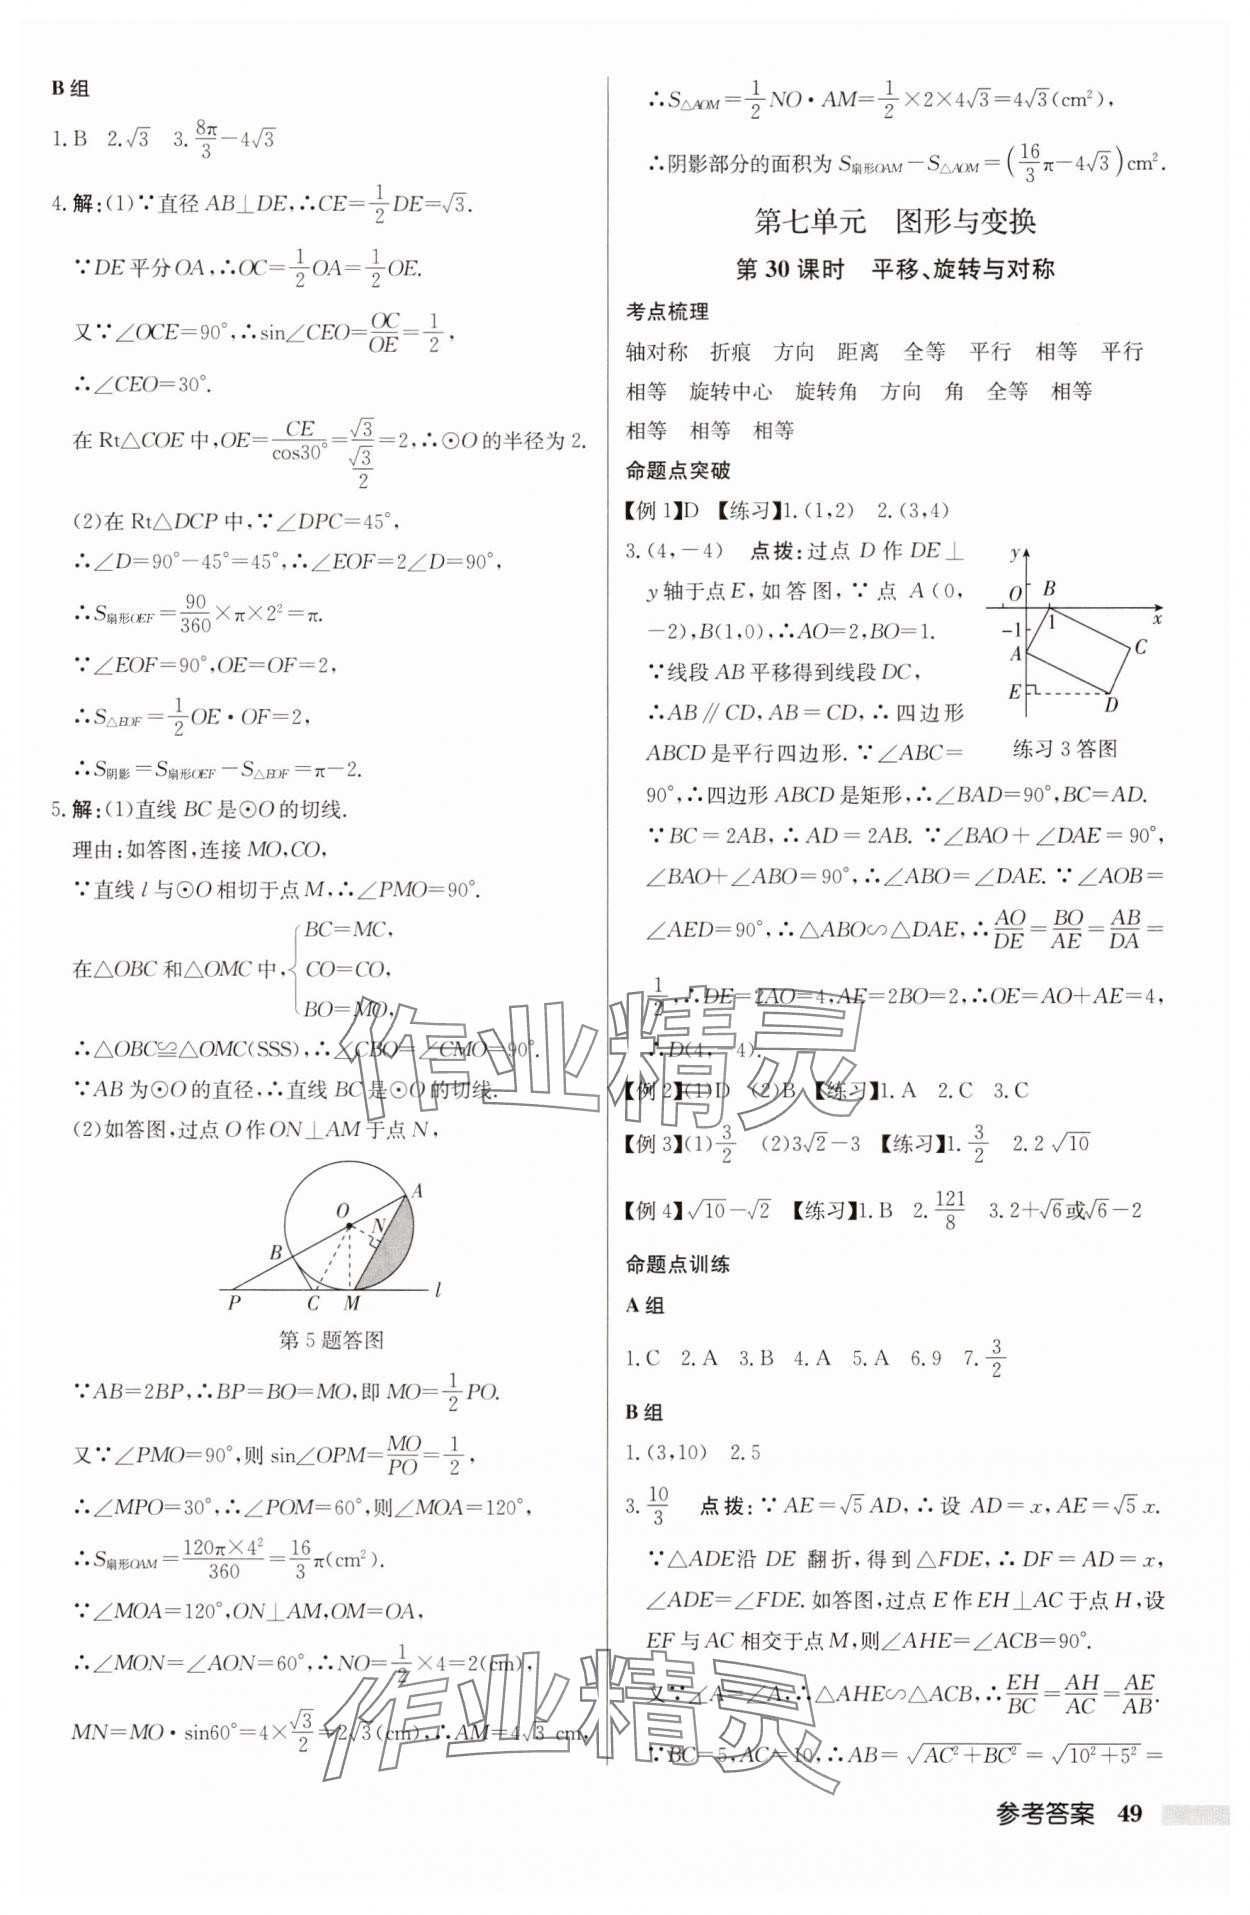 B 组
1. B 2. √3 3. 8π/3－4√3
4. 解:(1)∵直径 AB⊥DE,∴CE=1/2DE=√3.
∵DE平分OA,∴OC=1/2OA=1/2OE.
又∵∠OCE=90°,∴sin∠CEO=OC/OE=1/2,
∴∠CEO=30°.
在 Rt△COE 中,OE=CE/cos30°=√3/(√3/2)=2,∴⊙O的半径为2.
(2)在 Rt△DCP 中,∵∠DPC=45°,
∴∠D=90°-45°=45°,∴∠EOF=2∠D=90°,
∴S扇形OEF=90/360×π×2²=π.
∵∠EOF=90°,OE=OF=2,
∴S△EOF=1/2OE·OF=2,
∴S阴影=S扇形OEF-S△EOF=π-2.
5. 解:(1)直线 BC 是⊙O的切线.
理由:如答图,连接 MO,CO,
∵直线 l 与⊙O 相切于点 M,∴∠PMO=90°.
在△OBC 和△OMC 中,{BC=MC,
CO=CO,
BO=MO,
∴△OBC≌△OMC(SSS),∴∠CBO=∠CMO=90°.
∵AB 为⊙O 的直径,∴直线 BC 是⊙O 的切线.
(2)如答图,过点 O 作 ON⊥AM 于点 N,
A
O
N
B
P C M l
第 5 题答图
∵AB=2BP,∴BP=BO=MO,即 MO=1/2PO.
又∵∠PMO=90°,则 sin∠OPM=MO/PO=1/2,
∴∠MPO=30°,∴∠POM=60°,则∠MOA=120°,
∴S扇形OAM=120π×4²/360=16/3π(cm²).
∵∠MOA=120°,ON⊥AM,OM=OA,
∴∠MON=∠AON=60°,∴NO=1/2×4=2(cm),
MN=MO·sin60°=4×√3/2=2√3(cm),∴AM=4√3 cm,
∴S△AOM=1/2NO·AM=1/2×2×4√3=4√3(cm²),
∴阴影部分的面积为 S扇形OAM-S△AOM=(16/3π-4√3)cm².
第七单元 图形与变换
第 30 课时 平移、旋转与对称
考点梳理
轴对称 折痕 方向 距离 全等 平行 相等 平行
相等 旋转中心 旋转角 方向 角 全等 相等
相等 相等 相等
命题点突破
【例 1】D 【练习】1. (1,2) 2. (3,4)
3. (4,-4) 点拨:过点 D 作 DE⊥
y轴于点E,如答图,∵点 A(0,
-2),B(1,0),∴AO=2,BO=1.
∵线段 AB 平移得到线段 DC,
∴AB∥CD,AB=CD,∴四边形
ABCD 是平行四边形.∵∠ABC=
y
O B
1 x
-1
A C
E D
练习 3 答图
90°,∴四边形 ABCD 是矩形,∴∠BAD=90°,BC=AD.
∵BC=2AB,∴AD=2AB.∵∠BAO+∠DAE=90°,
∠BAO+∠ABO=90°,∴∠ABO=∠DAE.∵∠AOB=
∠AED=90°,∴△ABO∽△DAE,∴AO/DE=BO/AE=AB/DA=
1/2,∴DE=2AO=4,AE=2BO=2,∴OE=AO+AE=4,
∴D(4,-4).
【例 2】(1)D (2)B 【练习】1. A 2. C 3. C
【例 3】(1)3/2 (2)3√2-3 【练习】1. 3/2 2. 2√10
【例 4】√10-√2 【练习】1. B 2. 121/8 3. 2+√6或√6-2
命题点训练
A 组
1. C 2. A 3. B 4. A 5. A 6. 9 7. 3/2
B 组
1. (3,10) 2. 5
3. 10/3 点拨:∵AE=√5AD,∴设 AD=x,AE=√5x.
∵△ADE沿 DE 翻折,得到△FDE,∴DF=AD=x,
∠ADE=∠FDE.如答图,过点 E 作 EH⊥AC 于点 H,设
EF 与 AC 相交于点 M,则∠AHE=∠ACB=90°.
又∵∠A=∠A,∴△AHE∽△ACB,∴EH/BC=AH/AC=AE/AB.
∵BC=5,AC=10,∴AB=√(AC²+BC²)=√(10²+5²)=
参考答案 49
作业精灵
作业精灵